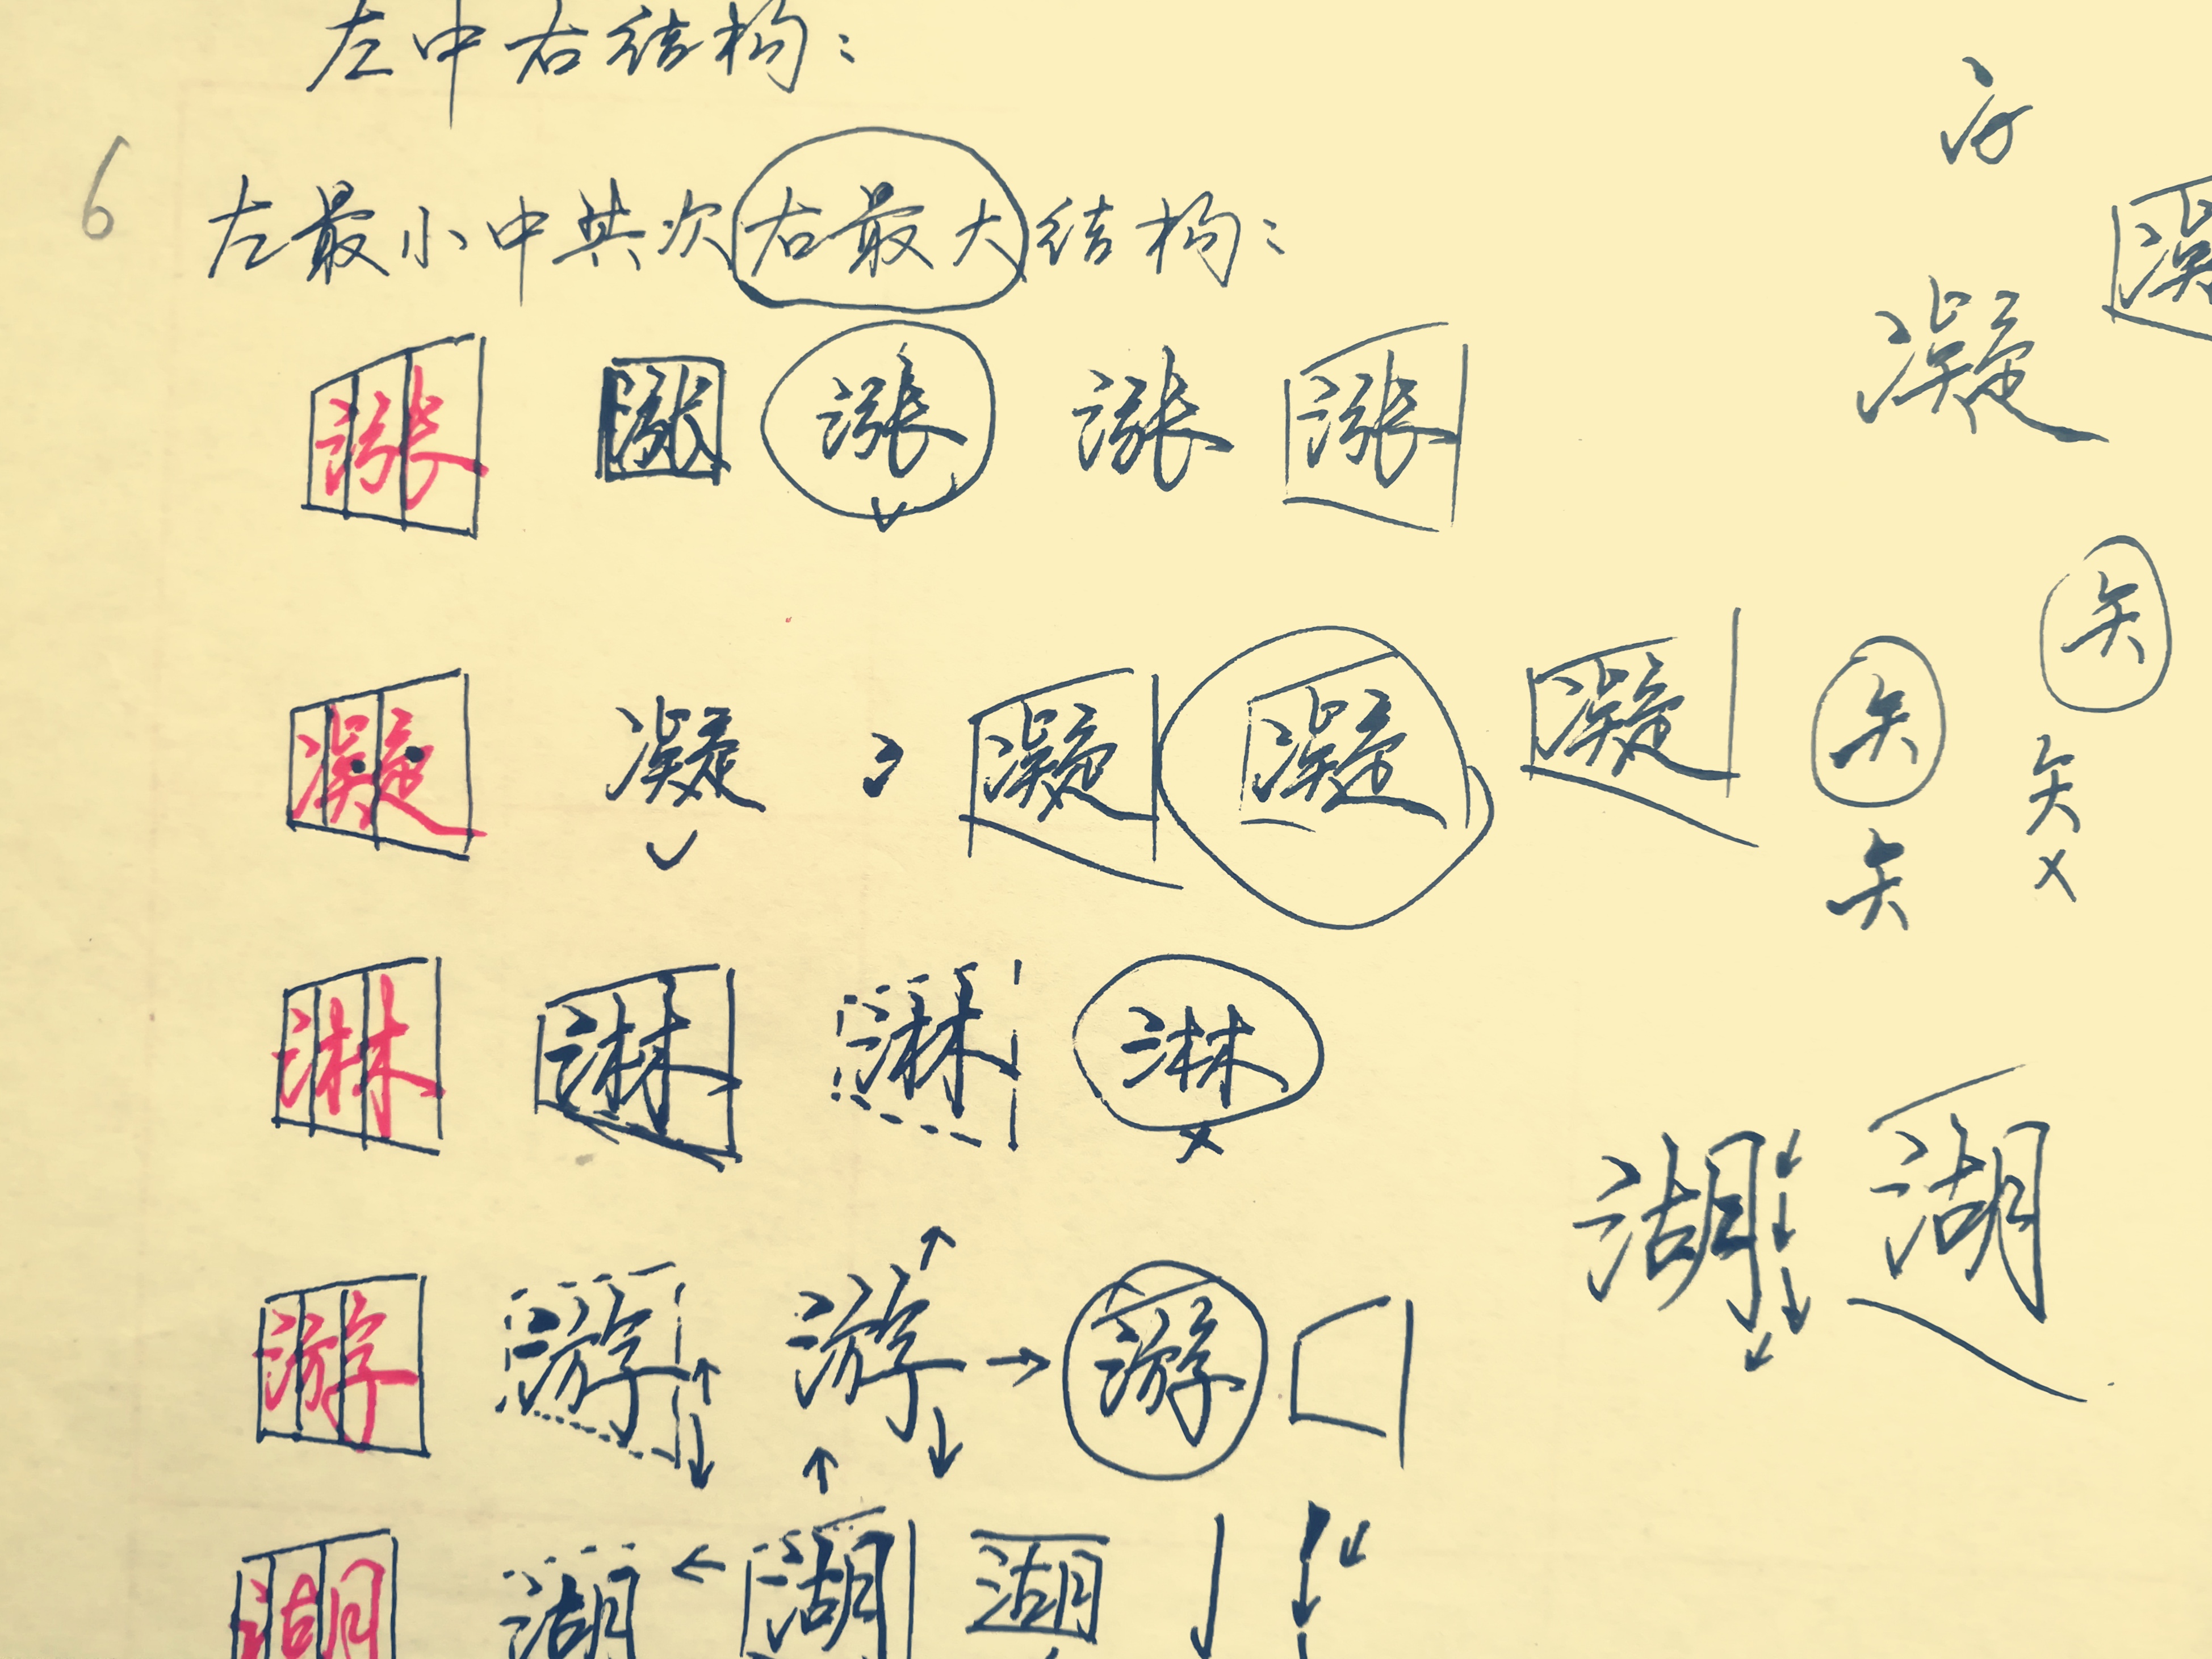 左中右结构：
6 左最小中其次右最大结构：
涨 涨 涨 涨 涨
凝 凝
凝 凝 冫 凝 凝 凝 矣 矣
矣 矣 x
淋 淋 淋 淋 x
湖 湖
游 游 游 游
湖 湖 湖 湖